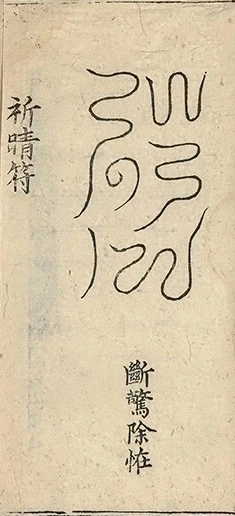 斷驚除恠
祈晴符